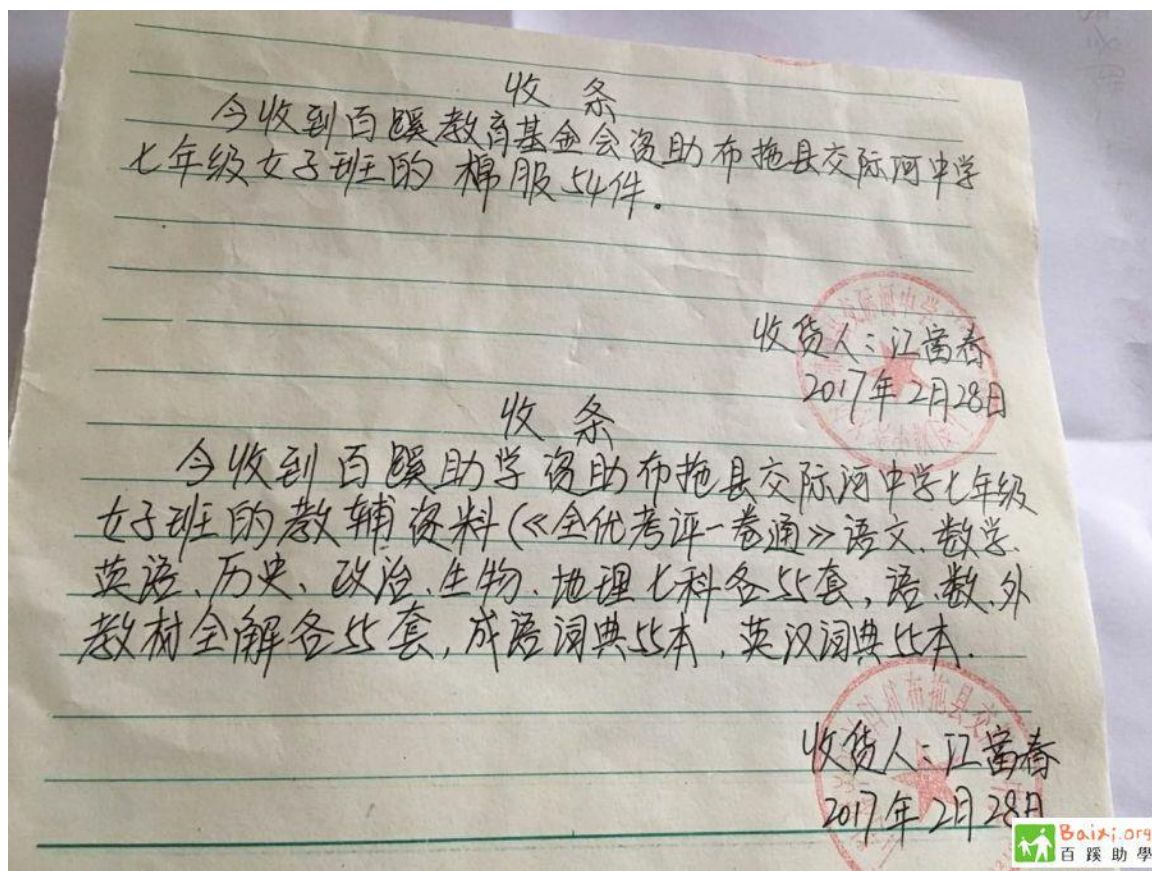 收条
今收到百蹊教育基金会资助布拖县交际河中学
七年级女子班的棉服54件。
收货人：江富春
2017年2月28日
收条
今收到百蹊助学资助布拖县交际河中学七年级
女子班的教辅资料(《全优考评一卷通》语文、数学、
英语、历史、政治、生物、地理七科各55套,语、数、外
教材全解各55套,成语词典55本,英汉词典55本.
收货人：江富春
2017年2月28日
Baixi.org
百蹊助學